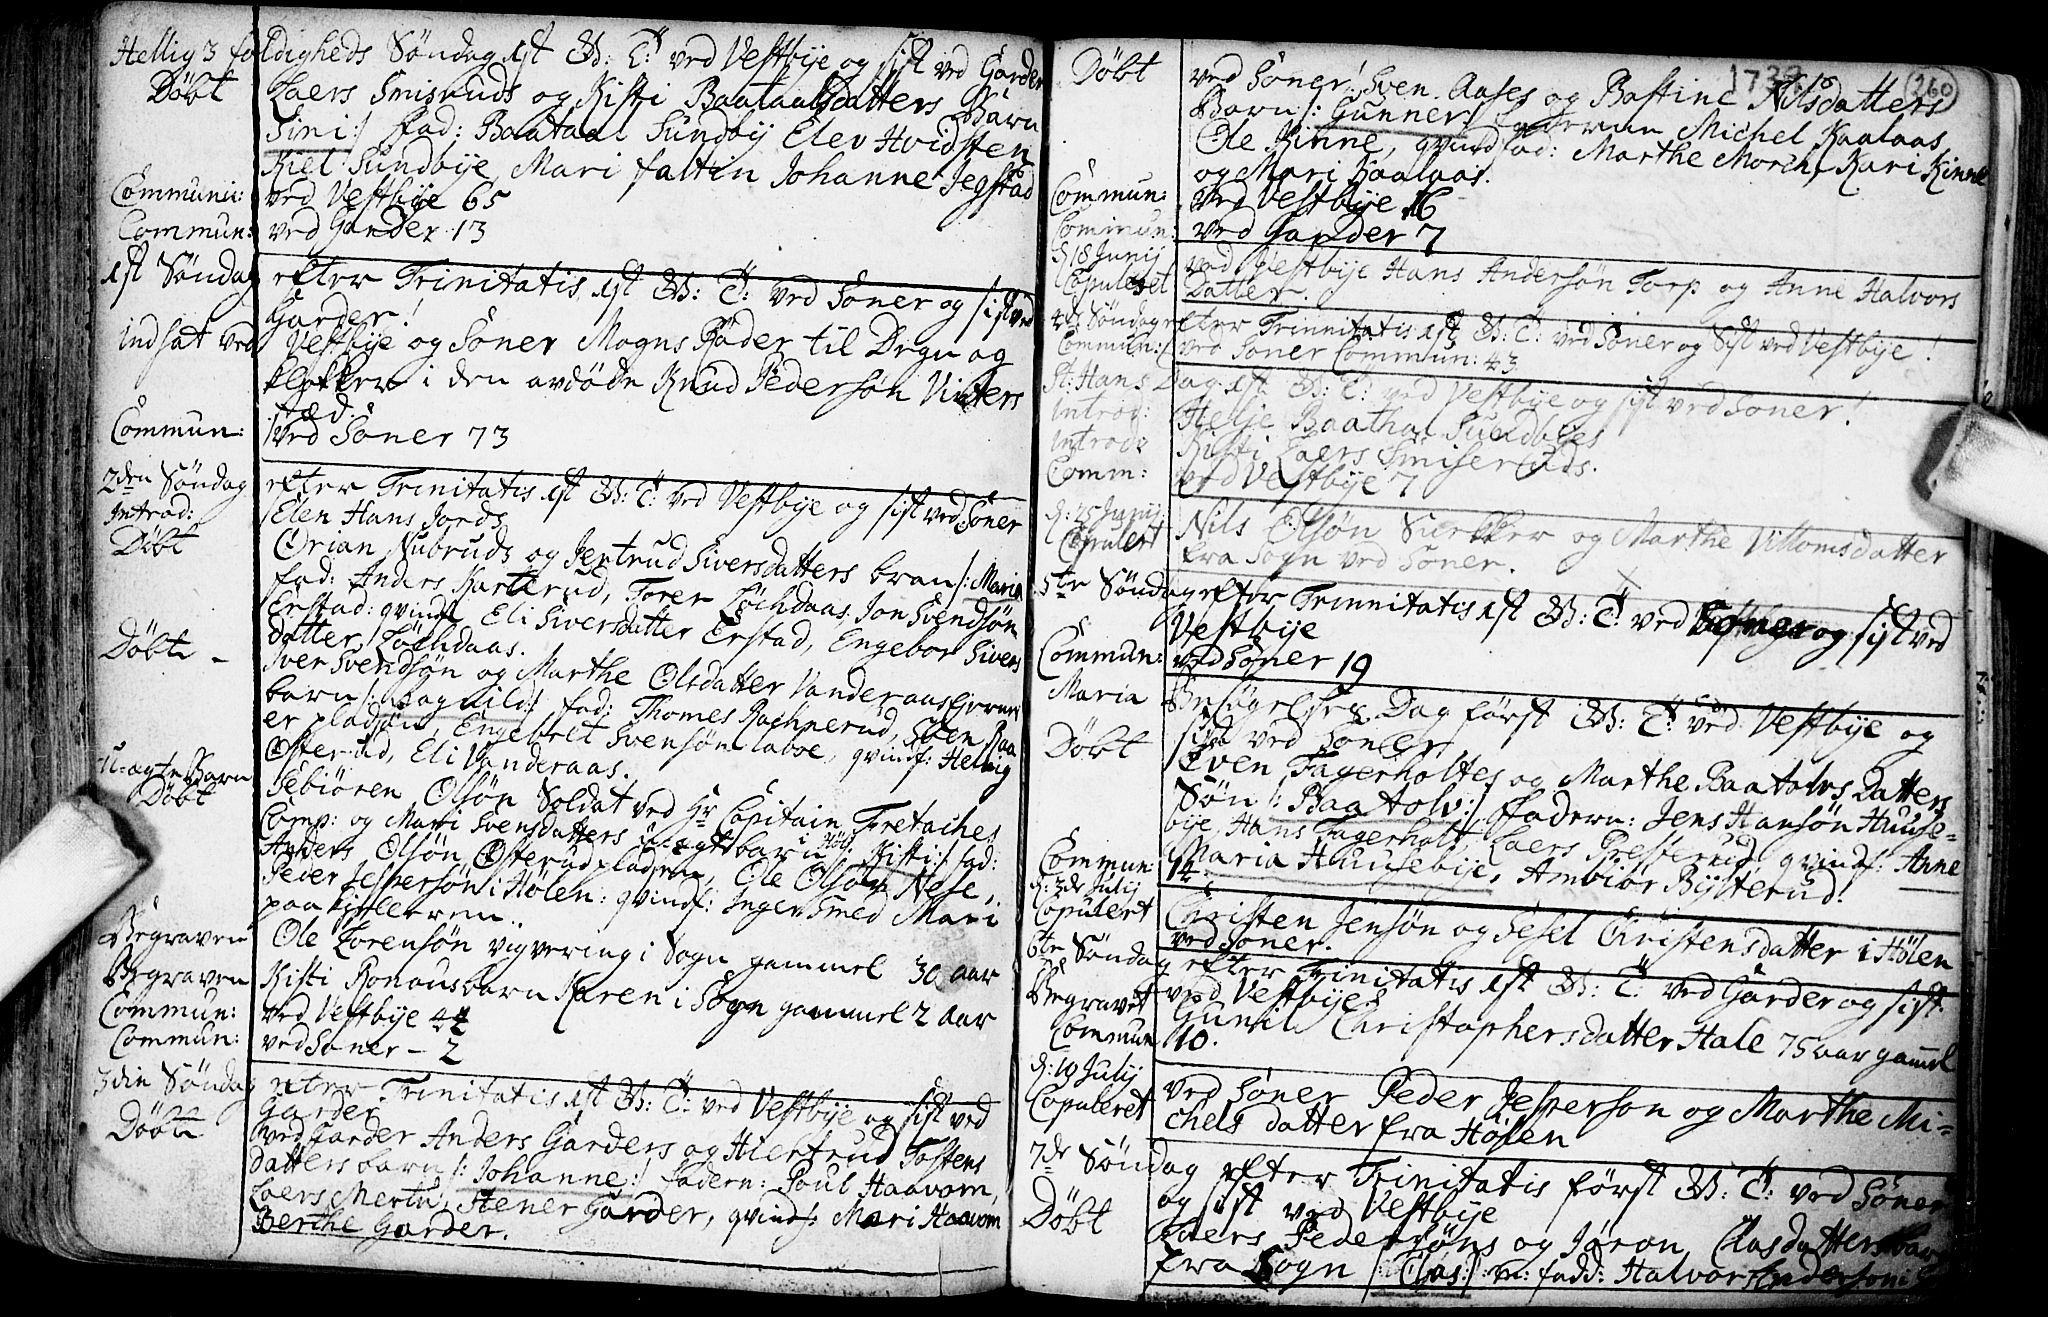 Hellig 3 foldigheds Söndag 1st B: T: ved Vestbÿe og sist ved Garder
Döbt Laers Smisruds og Kisti Baataalsdatters Barn
Sini :/ Fad: Baataal Sundbÿ Elev Hvidsten
Kiel Sundbÿe, Mari falten Johanne Jegstad
Communi: ved Vestbÿe 65
Commun: ved Garder 13
1st Söndag efter Trinitatis 1st B: T: ved Soner og sist ved
Garder!
indsat ved Vestbÿe og Soner Mogns Røder til Degn og
klokker i den avdöde Knud Pedersøn Vinters
stæd.
Commun: ved Soner 73
2den Söndag efter Trinitatis 1st B: T: ved Vestbÿe og sist ved Soner
Introd: Elen Hans Jords
Döbt Orian Nubruds og Jertrud Siversdatters bran /: Maria
fad: Anders Karlerud, Torer Löchdaas, Jon Svendsön
Erstad: qvindf: Eli Siversdatter Erstad, Engebor Sivers
datter Löchdaas.
Döbt - Iver Svendsön og Marthe Olsdatter Vanderaas
barn /: Ragnild :/ fad: Thomes Rachnerud, Sven Raa
er pladsen, Engebret Svensøn laboe, qvindf: Helvig
Osterud, Eli Vanderaas.
U-ægte Barn Tebiören Olsön Soldat ved Hr Capitain Fretaches
Döbt Comp: og Marri Svensdatters uægt barn i Höl: Kisti :/ fad:
Anders Olsön Osterud pladsen, Ole Olsön Nese,
Peder Jespersön i Hölen: qvindf: Inger Smed Mari
paa kielleren.
Begraven Ole Lorensön vigvering i Sogn gammel 30 aar
Begraven Kisti Ronausbarn Karen i Sogn gammel 2 aar
Commun: ved Vestbÿe 42
Commun: ved Soner - 2
3din Söndag efter Trinitatis 1st B: T: ved Vestbÿe og sist ved
Garder
Döbt ved Garder Anders Garders og Hiertrud Tostens
datters barn /: Johanne :/ fadern: Poul Haavom,
Laers Mertu, Stener Garder, qvindf: Mari Haavom
Berthe Garder.
1732
260
Döbt ved Soner! Sven Aases og Bastine Nilsdatters
Barn /: Gunner :/ Michel Kaalaas
Ole Kinne, qvindfad: Marthe Morch, Kari Kinne
og Mari Kaalaas.
Commun: ved Vestbÿe 16
Commun: ved Garder 7
d 18 Junij ved Vestbÿe Hans Andersøn Torp og Anne Halvors
Copuleret Datter.
4de Söndag efter Trinnitatis 1st B: T: ved Soner og Sist ved Vestbÿe!
Commun: ved Soner Commun: 43
St: Hans Dag 1st B: T: ved Vestbÿe og sist ved Soner!
Introd: Helje Baathal Sundbÿes
Introd: Kisti Laers Smiseruds.
Comm: ved Vestbÿe 7
d: 25 Junij Nils Olsön og Marthe Villomsdatter
Copulert fra Sogn ved Soner.
5te Söndag efter Trinnitatis 1st B: T: ved Soner og sist ved
Vestbÿe
Commun: ved Soner 19
Maria Besøgelses Dag först B: T: ved Vestbÿe og
sist ved Soner
Döbt Even Fagerholtes og Marthe Baatolvs Datters
Søn /: Baatolv :/ Fadern: Jens Hansön Huuse-
bÿe, Hans Fagerholt, Laers Presterud, qvindf: Anne
Maria Huusebÿe, Ambiör Bÿsterud!
Commun: 14.
d: 3de Julij Christen Jensøn og Sesel Christensdatter i Hölen
Copulert ved Soner.
6te Söndag efter Trinitatis 1st B: T: ved Garder og sist
ved Vestbÿe
Begravet Gunil Christophersdatter Hale 75 aar gaml
Commun 10.
d: 10 Julij ved Söner Peder Jesperson og Marthe Mi-
Copuleret chels datter fra Hölen
7de Söndag efter Trinitatis först B: T: ved Söner
og sist ved Vestbÿe
Döbt Laers Pedersöns og Jöron Clasdatters barn
fra Sogn /: Clas :/ fadd: Halvor Anderson i